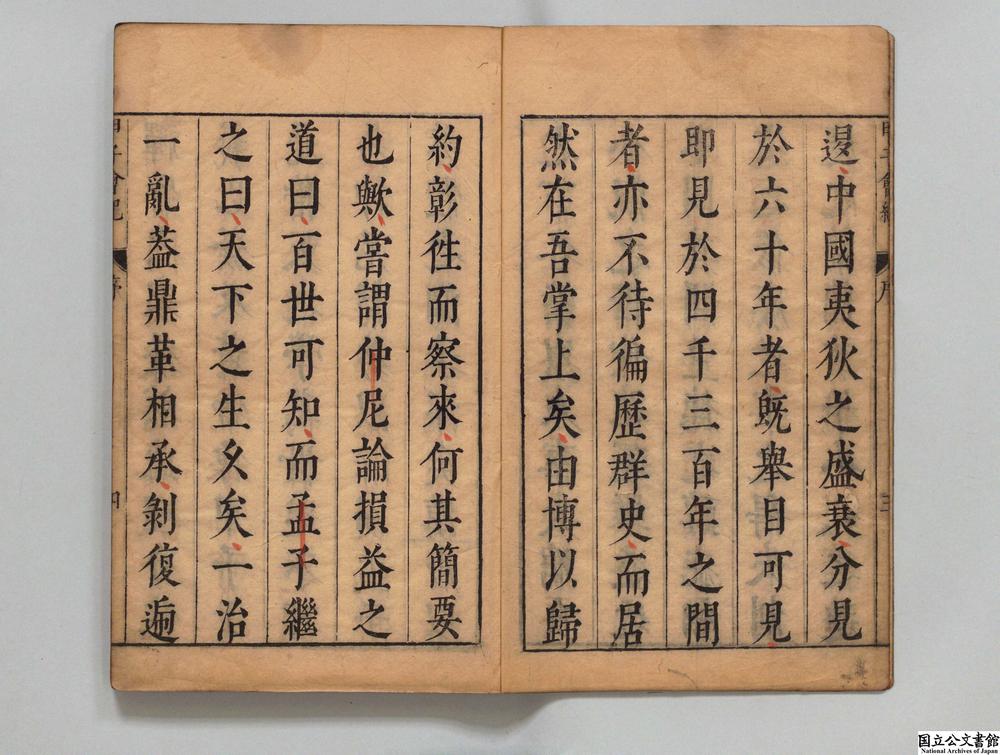 邊中國夷狄之盛衰分見
於六十年者旣舉目可見
即見於四千三百年之間
者亦不待徧歷群史而居
然在吾掌上矣由博以歸
約彰徃而察來何其簡要
也歟嘗謂仲尼論損益之
道曰百世可知而孟子繼
之曰天下之生久矣一治
一亂葢鼎革相承剝復遞
甲子會紀
序
三
甲子會紀
序
四
国立公文書館
National Archives of Japan